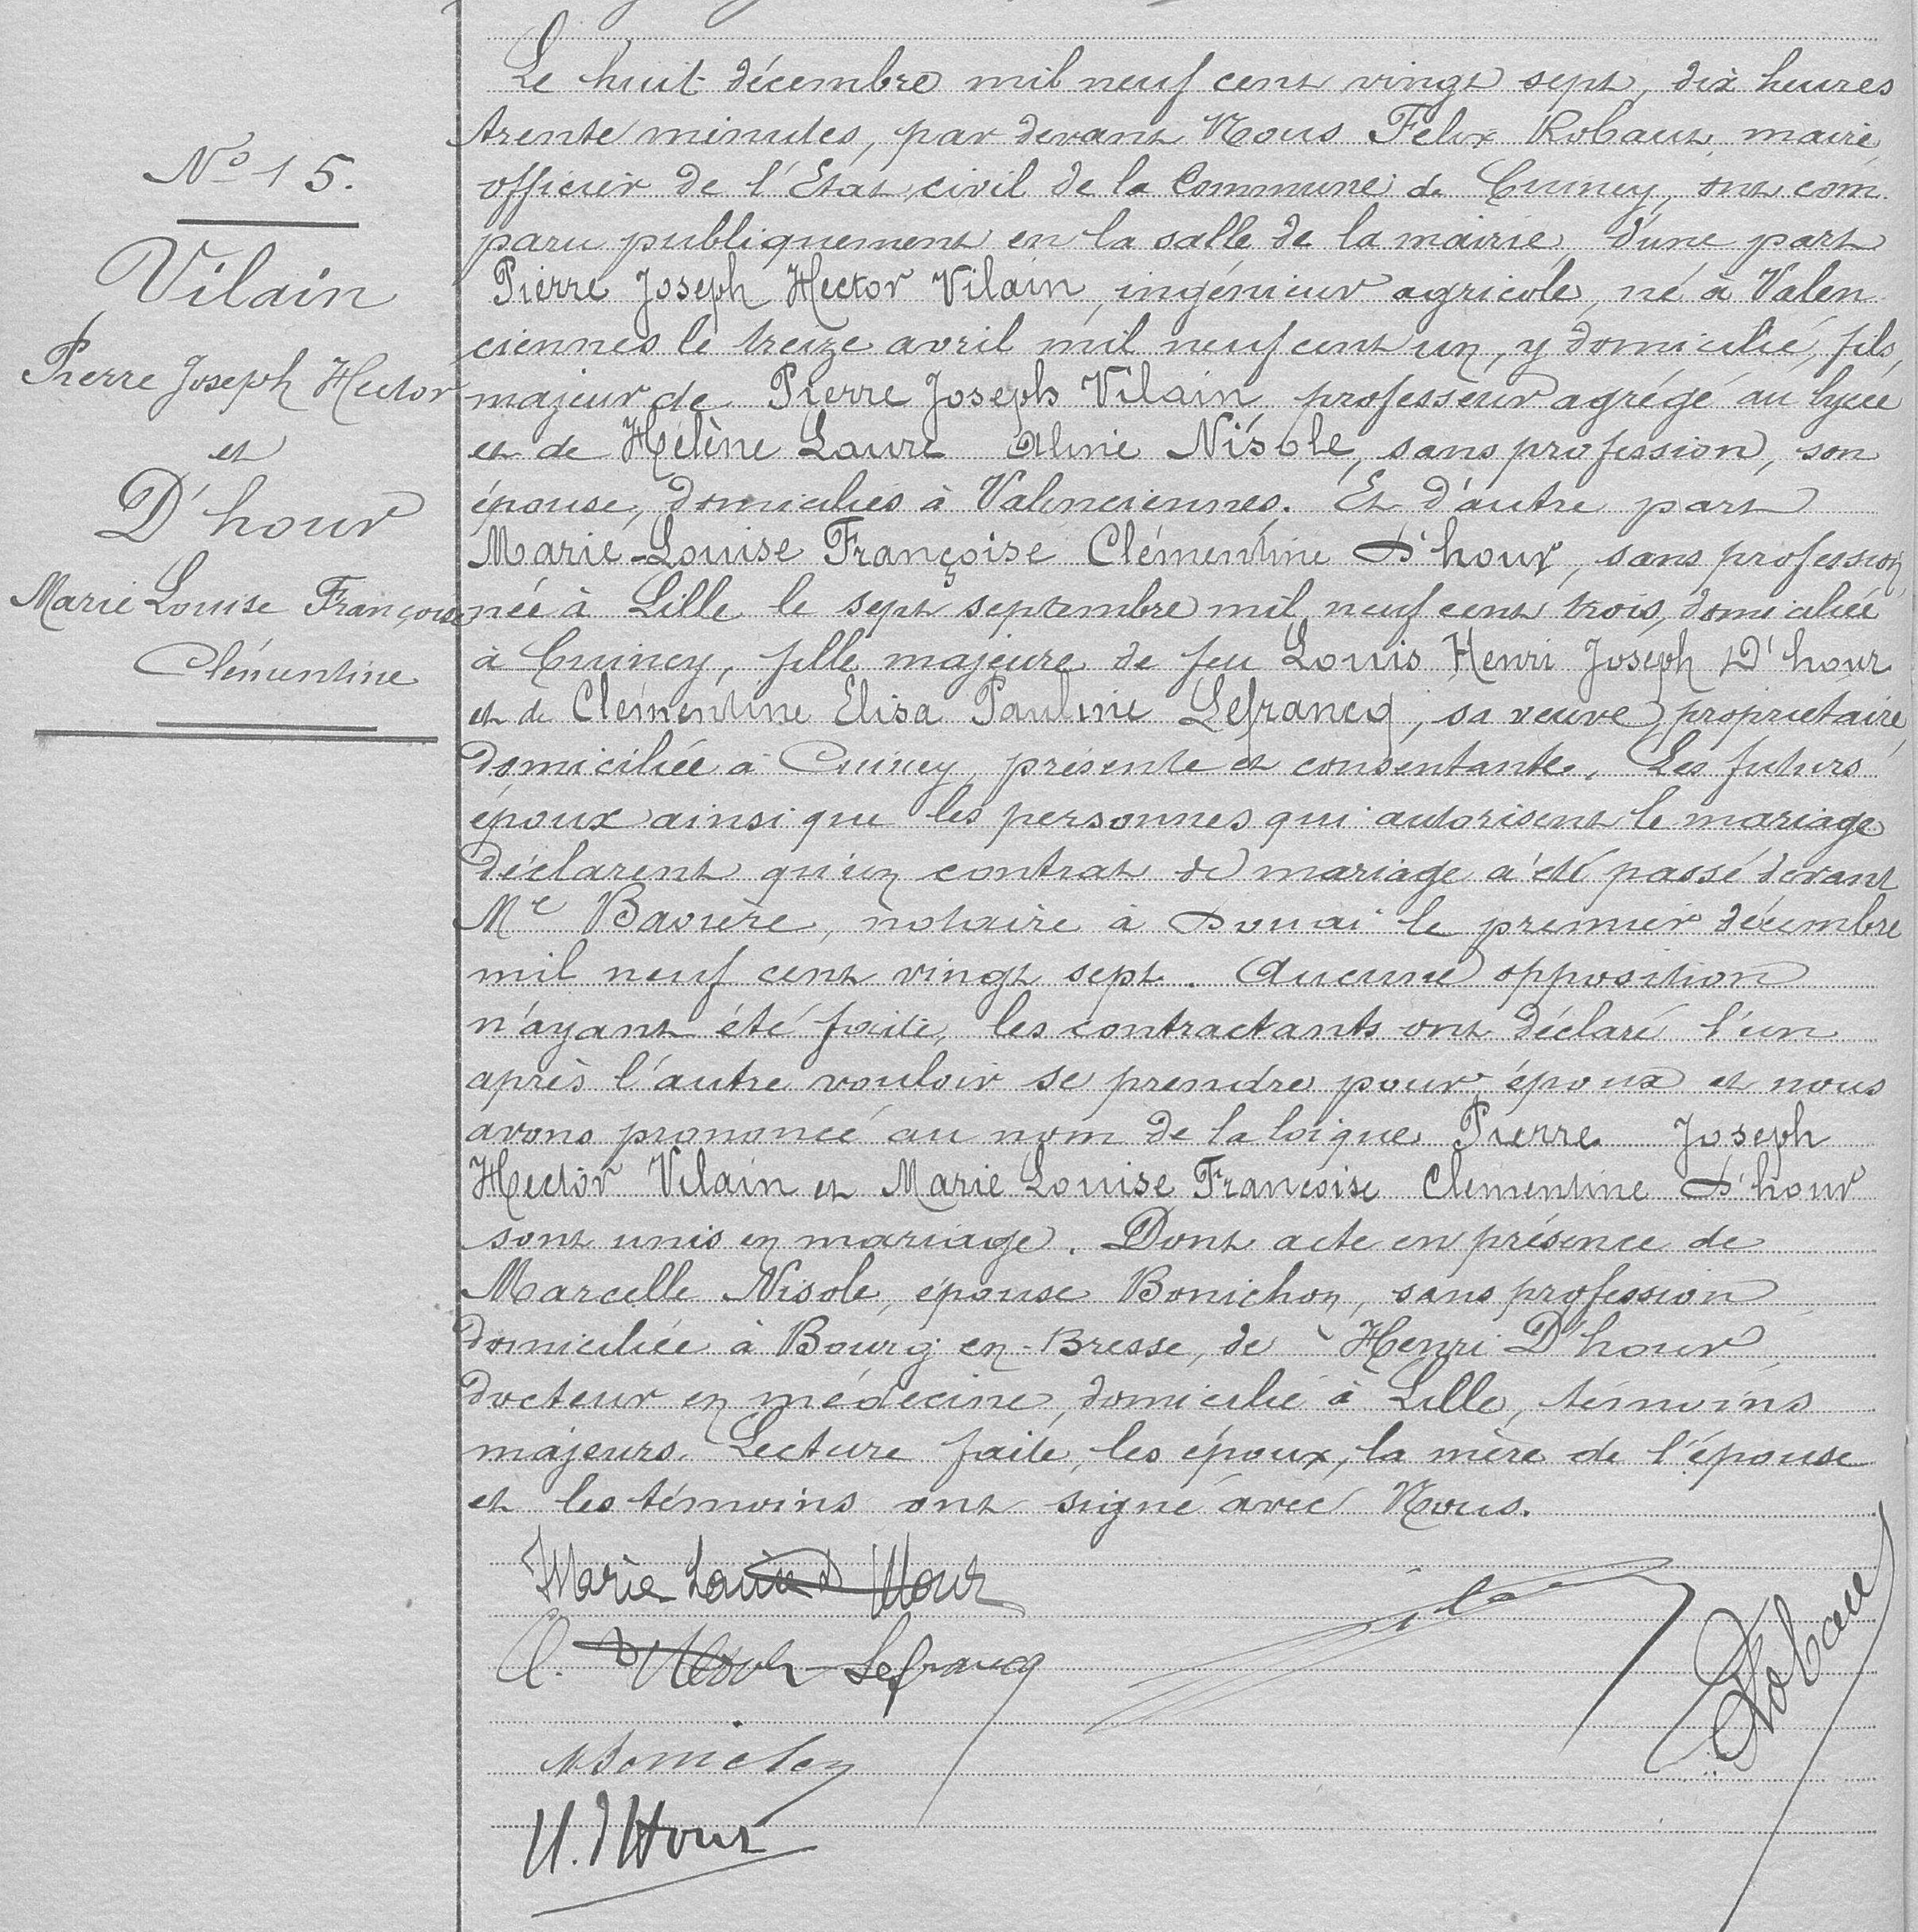 N° 15.
Vilain
Pierre Joseph Hector
et
D'hour
Marie Louise Françoise
Clémentine
Le huit décembre mil neuf cent vingt sept, dix heures
trente minutes, par devant Nous Félix Robaut, maire,
officier de l'Etat civil de la Commune de Cuincy, ont com
paru publiquement en la salle de la mairie, d'une part
Pierre Joseph Hector Vilain, ingénieur agricole, né à Valen
ciennes le treize avril mil neuf cent un, y domicilié, fils
majeur de Pierre Joseph Vilain professeur agrégé au lycée
et de Hélène Laure Aline Nisole, sans profession, son
épouse, domiciliés à Valenciennes. Et d'autre part
Marie-Louise Françoise Clémentine D'hour, sans profession,
née à Lille le sept septembre mil neuf cent trois, domiciliée
à Cuincy, fille majeure de feu Louis Henri Joseph D'hour
et de Clémentine Elisa Pauline Lefrancq, sa veuve, propriétaire,
domiciliée à Cuincy, présente et consentante. Les futurs
époux ainsi que les personnes qui autorisent le mariage
déclarent qu'un contrat de mariage a été passé devant
Me Bavière, notaire à Douai le premier décembre
mil neuf cent vingt sept. Aucune opposition
n'ayant été faite, les contractants ont déclaré l'un
après l'autre vouloir se prendre pour époux et nous
avons prononcé au nom de la loi que Pierre Joseph
Hector Vilain et Marie Louise Françoise Clémentine D'hour
sont unis en mariage. Dont acte en présence de
Marcelle Nisole, épouse Bonichon, sans profession
domiciliée à Bourg-en-Bresse, de Henri D'hour,
docteur en médecine, domicilié à Lille, témoins
majeurs. Lecture faite, les époux, la mère de l'épouse
et les témoins ont signé avec Nous.
Marie Louise D'Hour
C. D'Hour-Lefrancq
Robaut
M Bonichon
H. d'Hour